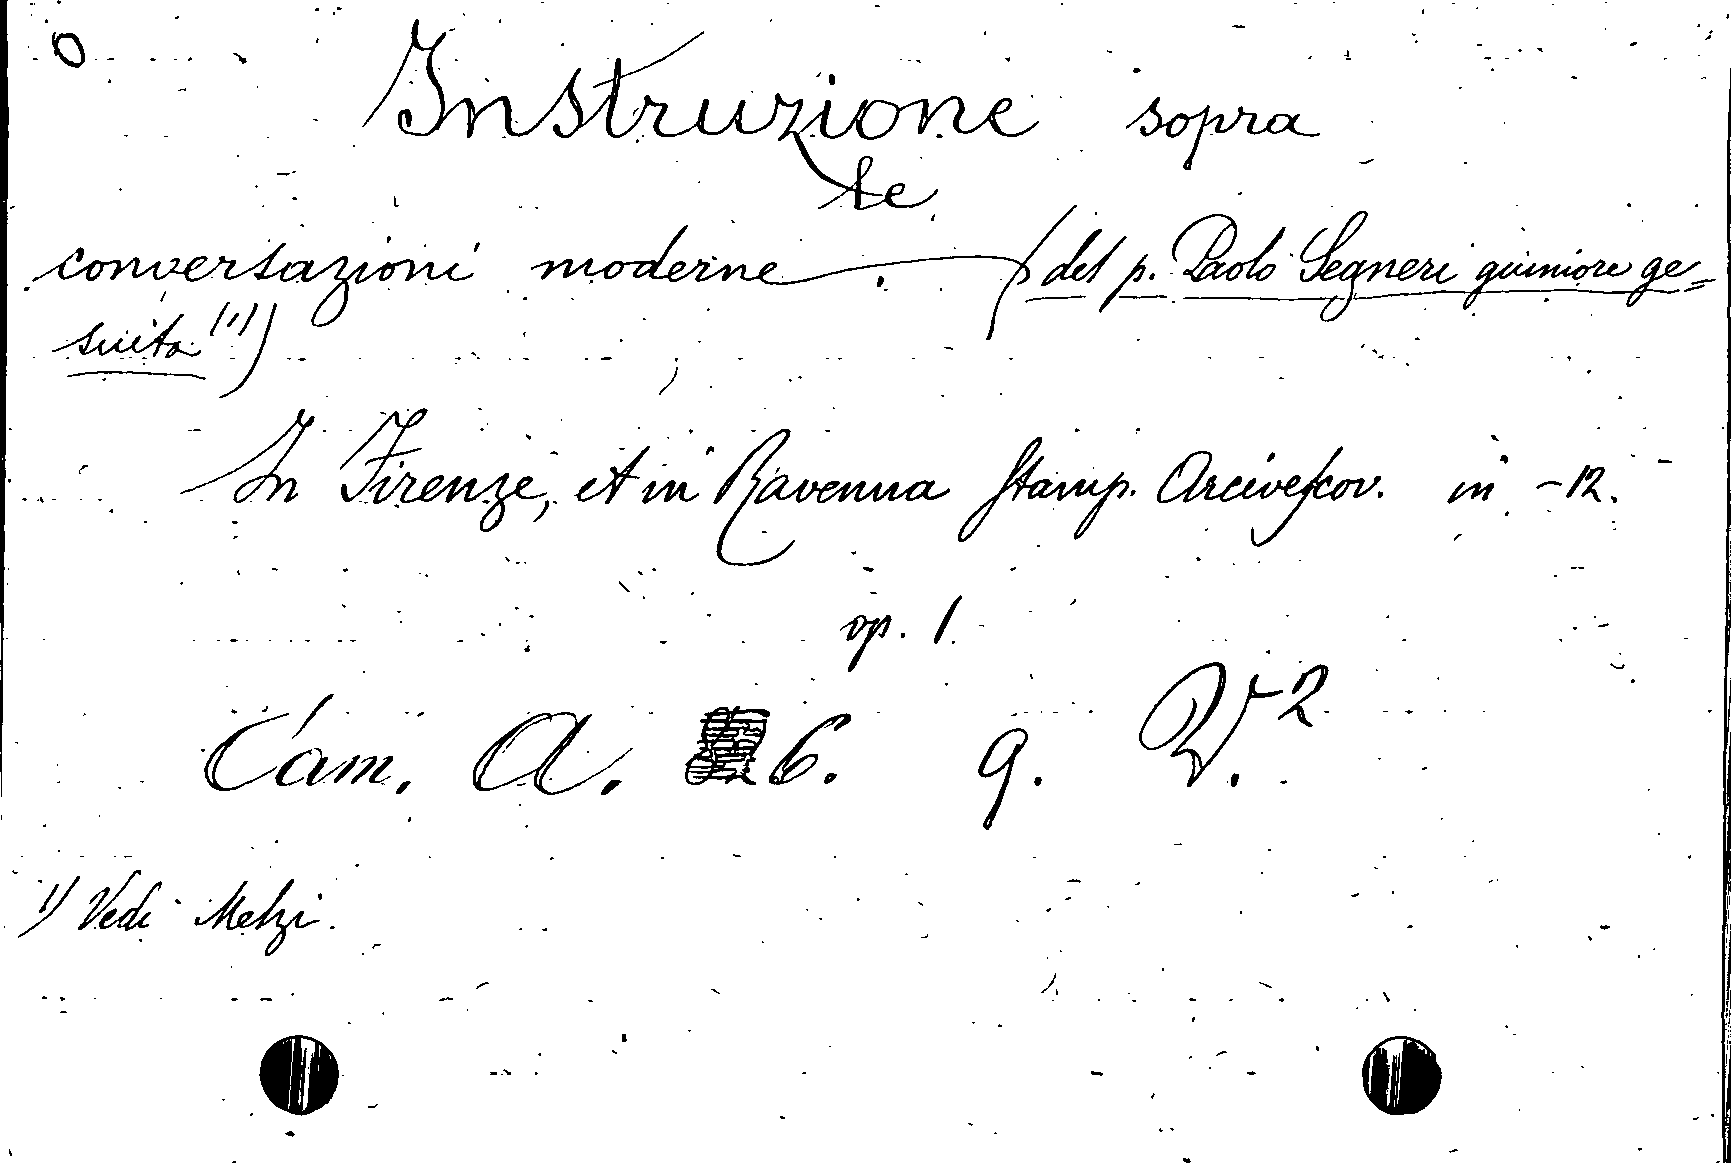 O
Instruzione sopra
le
conversazioni moderne. (del p. Paolo Segneri giuniore ge=
suita (1))
In Firenze, et in Ravenna Stamp. Arcivescov. in -12.
op. 1.
Cam. A. 6. 9. V.2
1) Vedi Melzi.